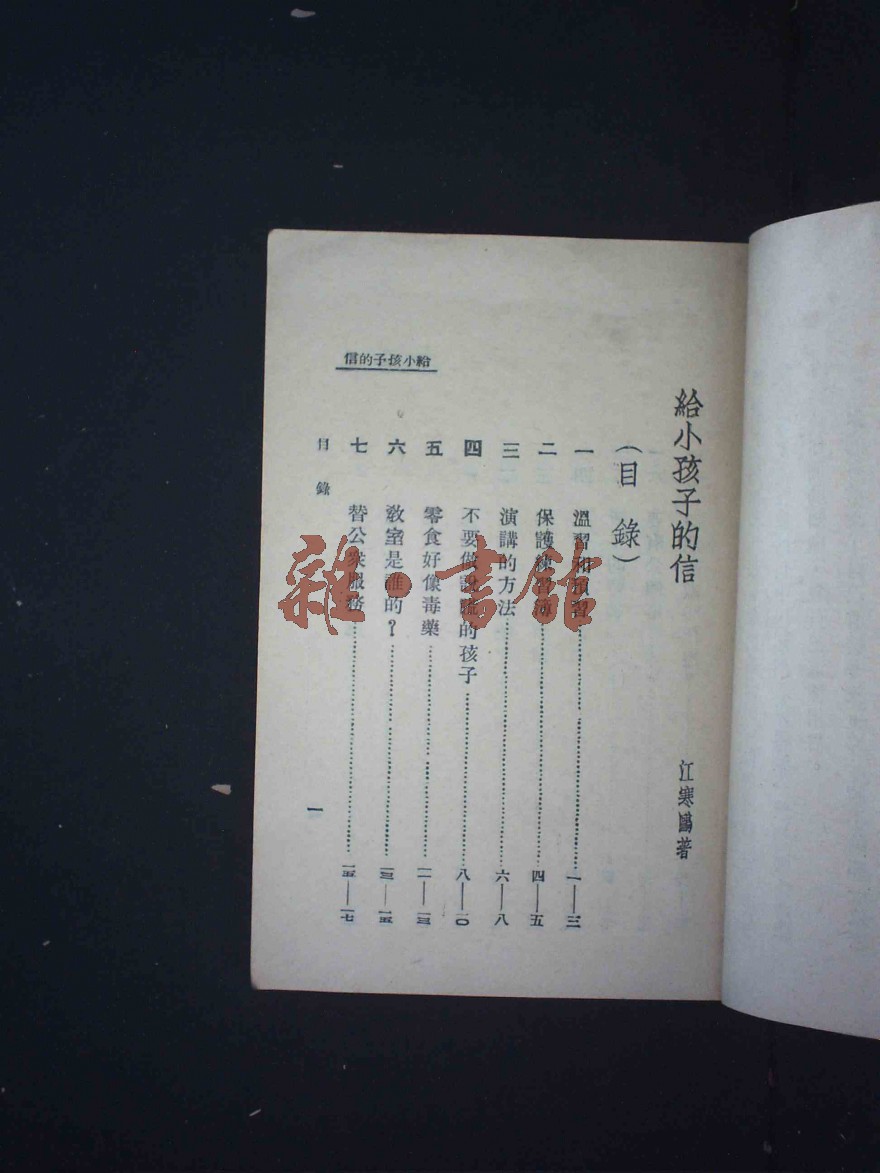 給小孩子的信
江寒鷗著
(目錄)
一 溫習和預習 一—三
二 保護練習簿 四—五
三 演講的方法 六—八
四 不要做說謊的孩子 八—一〇
五 零食好像毒藥 一一—一三
六 教室是誰的？ 一三—一五
七 替公衆服務 一五—一七
給小孩子的信
目錄
一
雜·書館